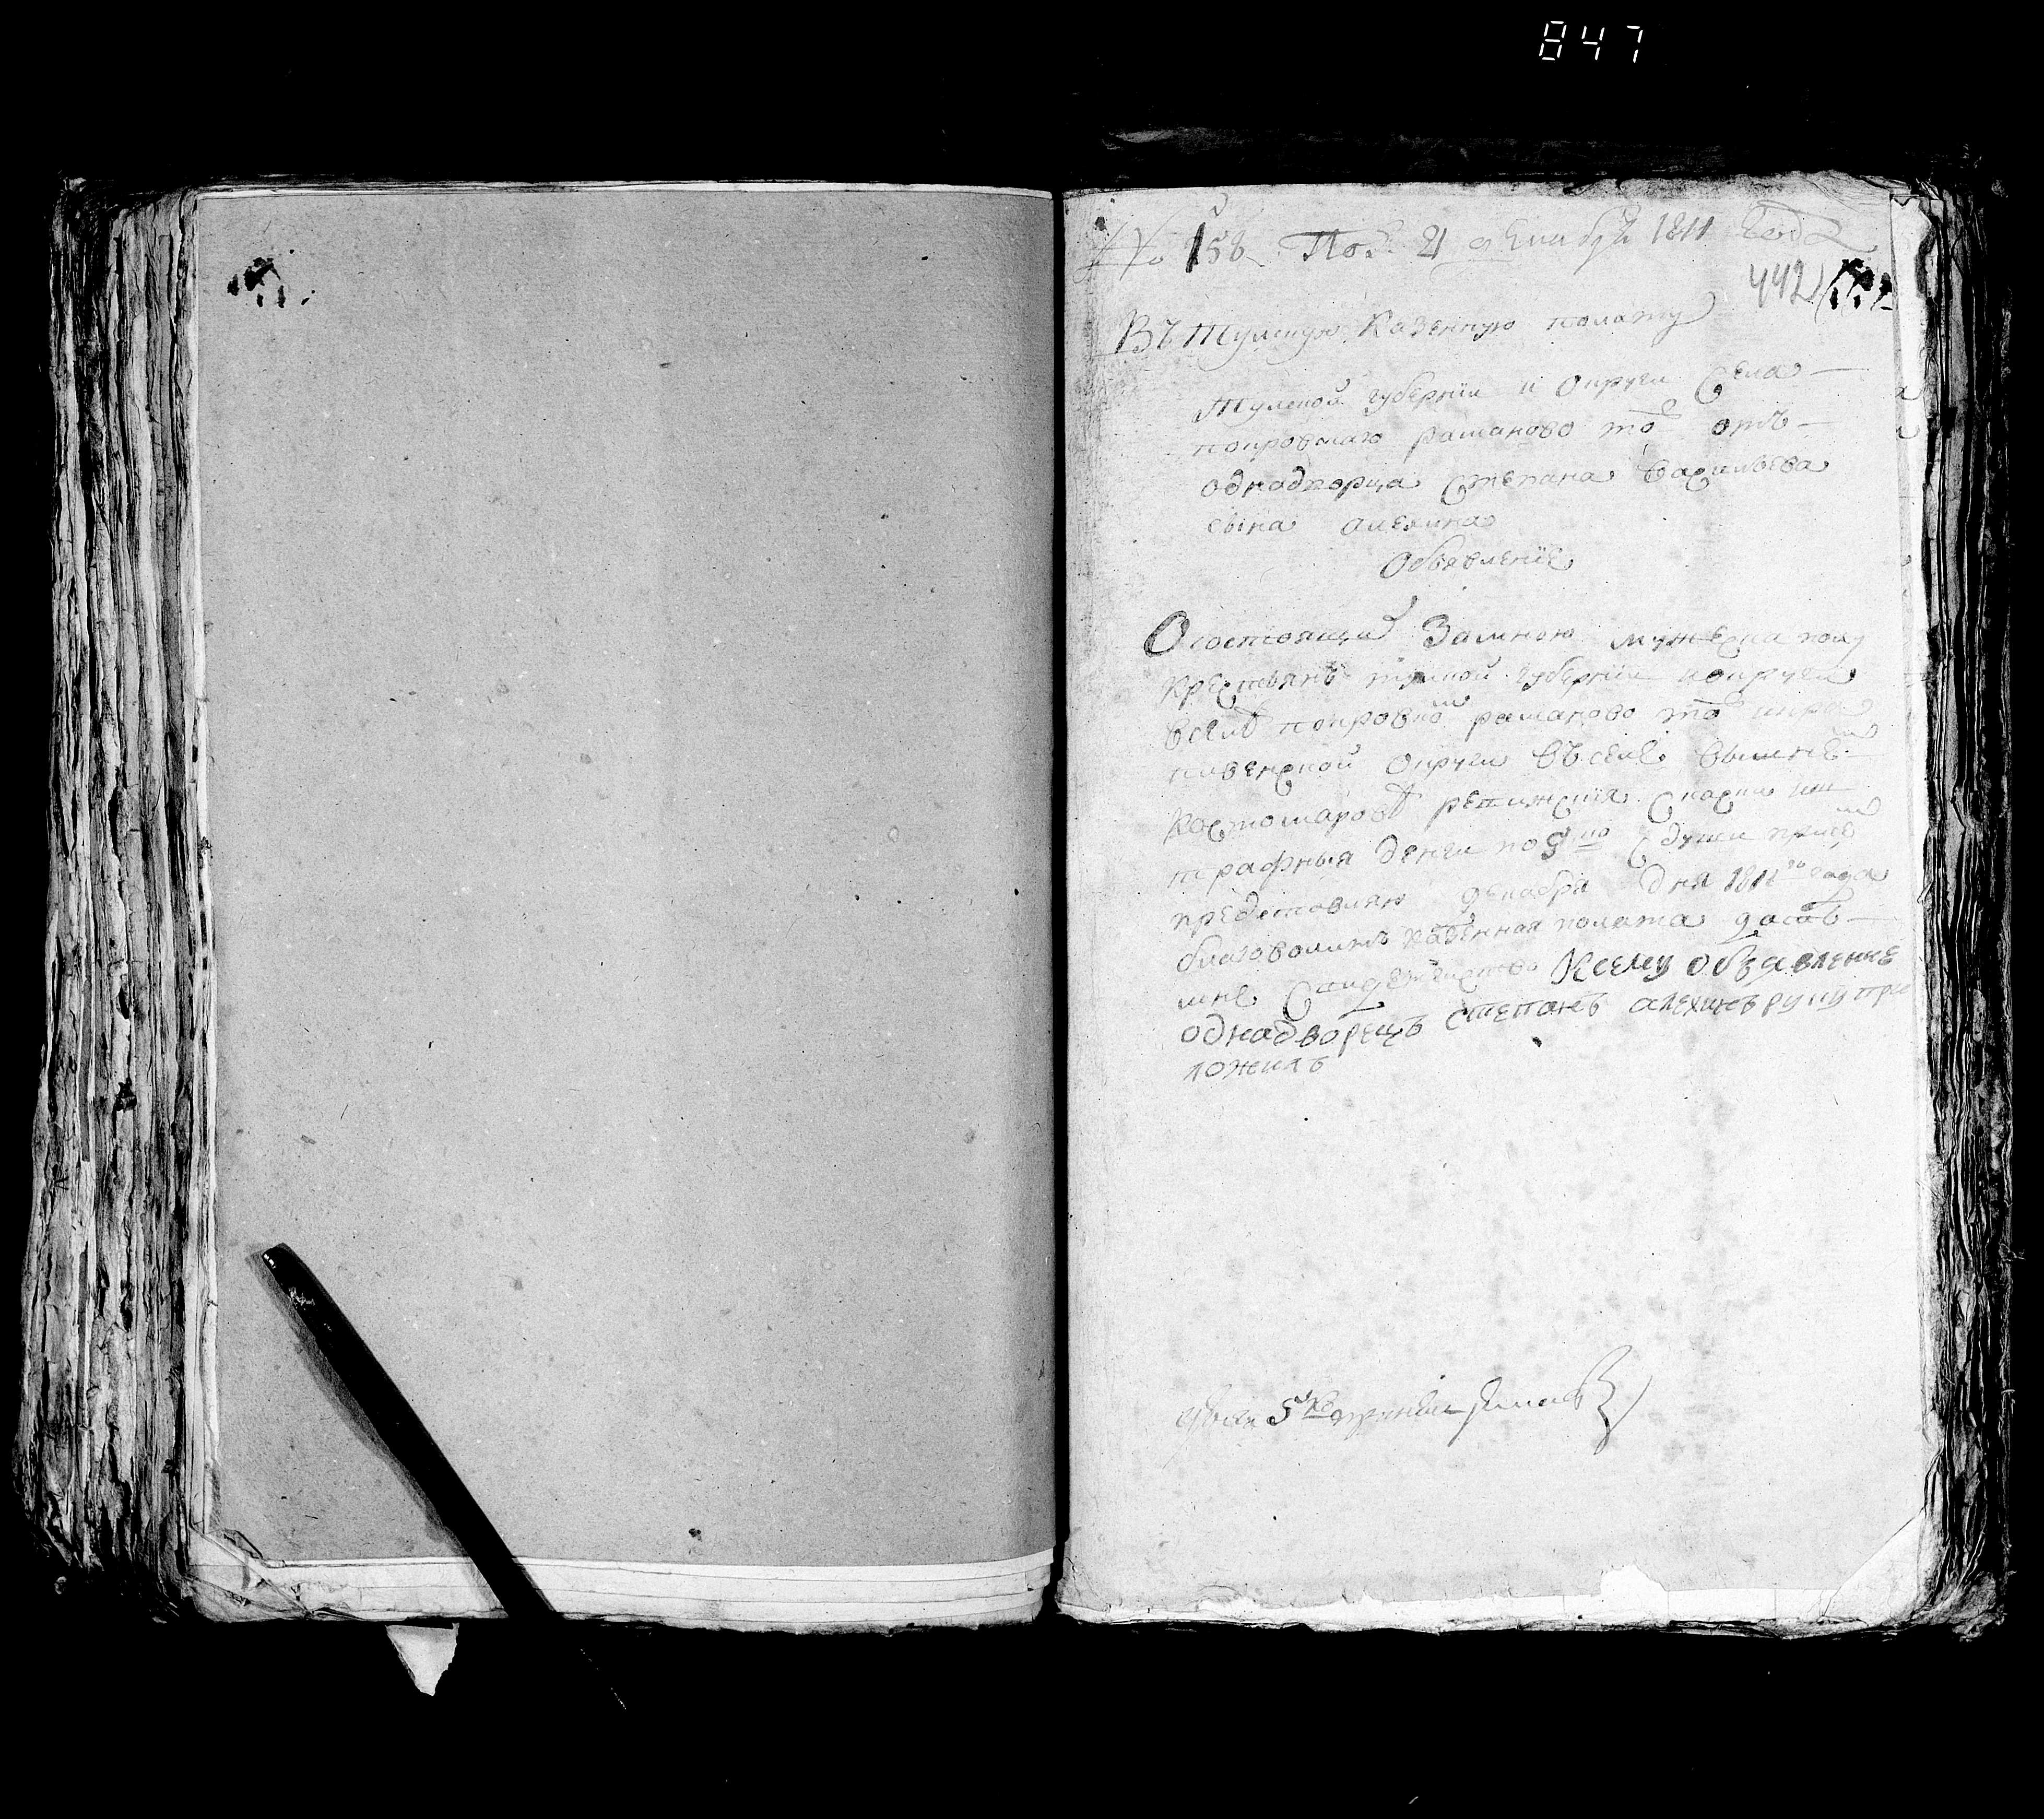 847
№ 158. Под. 21 декабря 1811 года
442
Въ тулскую Казенную полату
Тулской губернии и округи Села
покровскаго рамоново тож отъ
однадворца Степана Васильева
сына алехина
Объявление
О состоящих Замною мужеска полу
крестьянъ тулской губернии и округи
в селѣ покровском рамоново тож
округи въ селе вышнем
Костомаровѣ ревижския скаски и ш
трафныя денги по 5 ко с души при сем
представляю декабря дня 1811 го года
благоволить казенная полата дать
мне Ксему объявление
однадворецъ степанъ алехинъ руку при
ложилъ